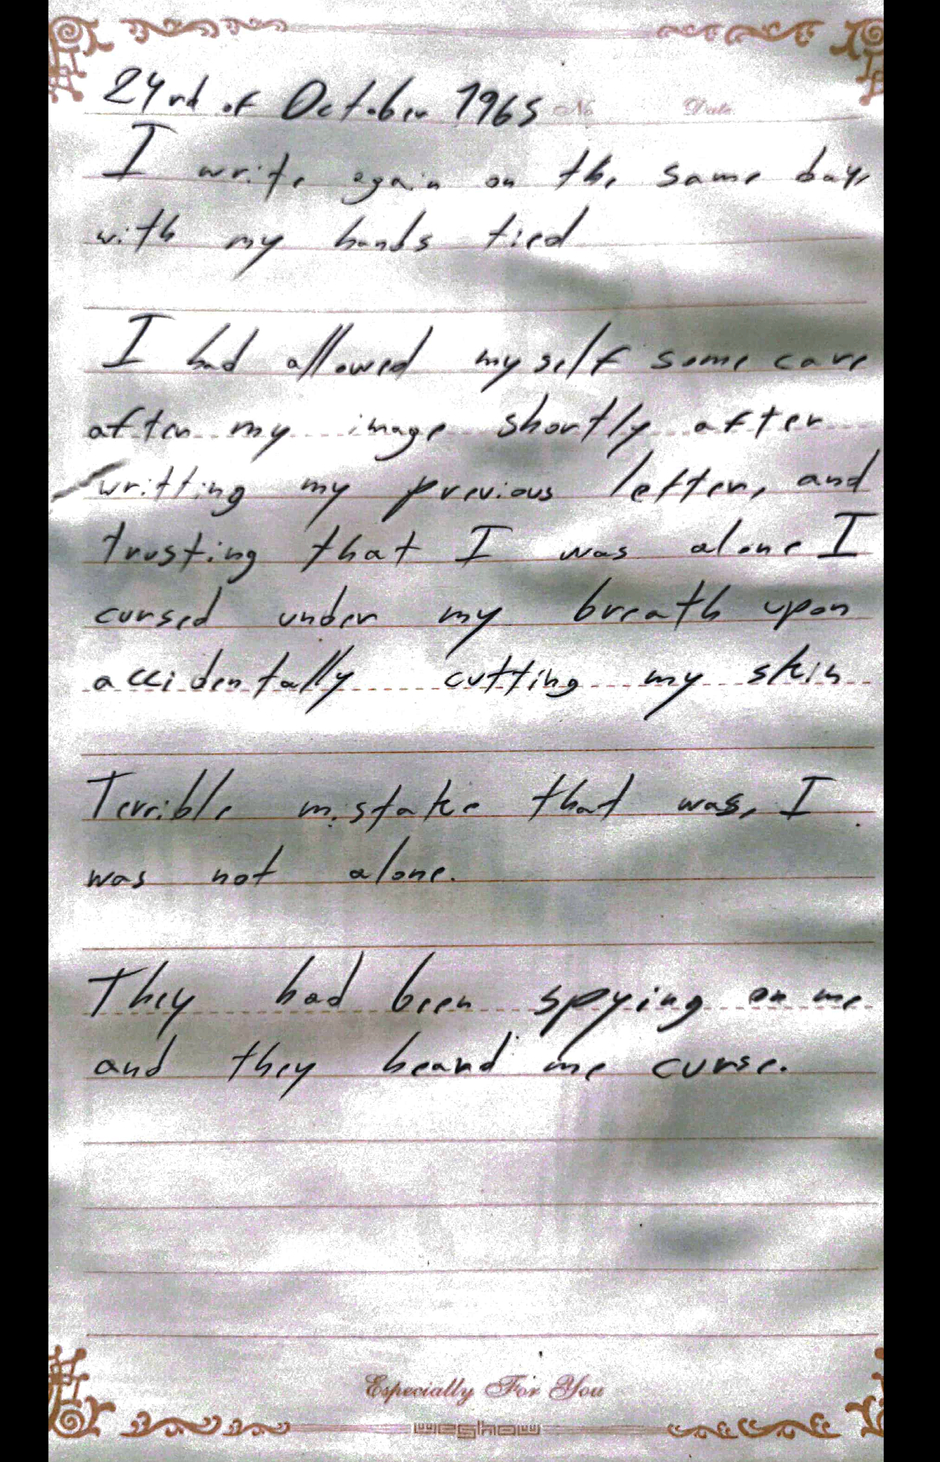 24rd of October 1965 No Date
I write again on the same day,
with my hands tied
I had allowed myself some care
after my image shortly after
writting my previous letter, and
trusting that I was alone I
cursed under my breath upon
accidentally cutting my skin
Terrible mistake that was, I
was not alone.
They had been spying on me
and they heard me curse.
Especially For You
weshow